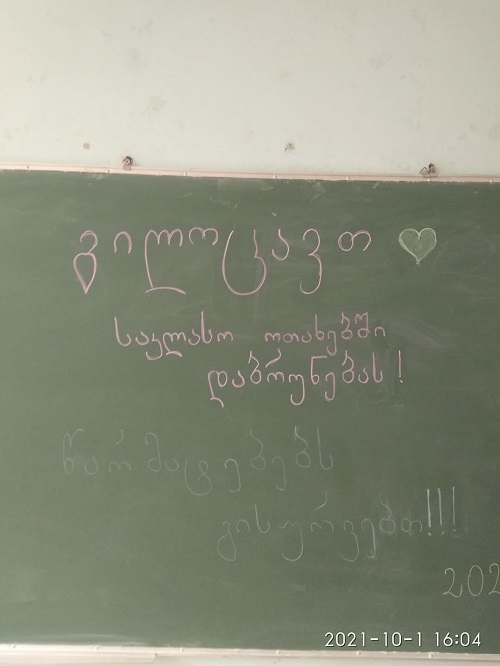 გილოცავთ
საკლასო ოთახებში
დაბრუნებას!
წარმატებებს
გისურვებთ!!!
202
2021-10-1 16:04